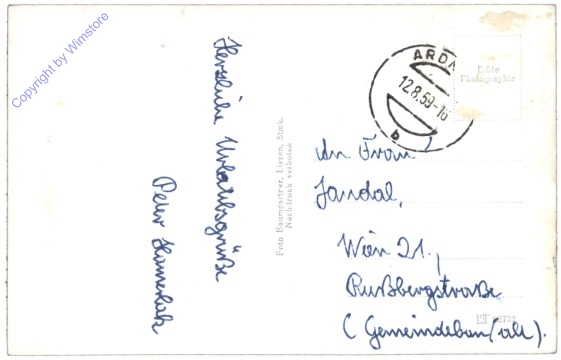 Copyright by Wimstore
Herzliche Urlaubsgrüße
Peter
Foto Baumgartner, Liezen, Stmk.
Nachdruck verboten
ARDN
12.8.59-16
b
Echte
Photographie
An Frau
Jandal,
Wien 21.,
Rußbergstraße
(Gemeindebau/alt).